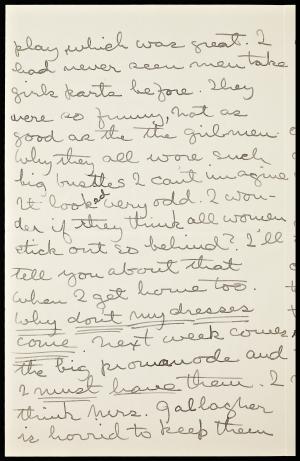 play, which was great. I
had never seen men take
girls parts before. They
were so funny, not as
good as the the girlsmen.
Why they all wore such
big bustles I can't imagine
It looked very odd. I won-
der if they think all women
stick out so behind? I'll
tell you about that
when I get home too.
Why don't my dresses
come. Next week comes
the big promanode and
I must have them. I
think Mrs. Gallagher
is horrid to keep them